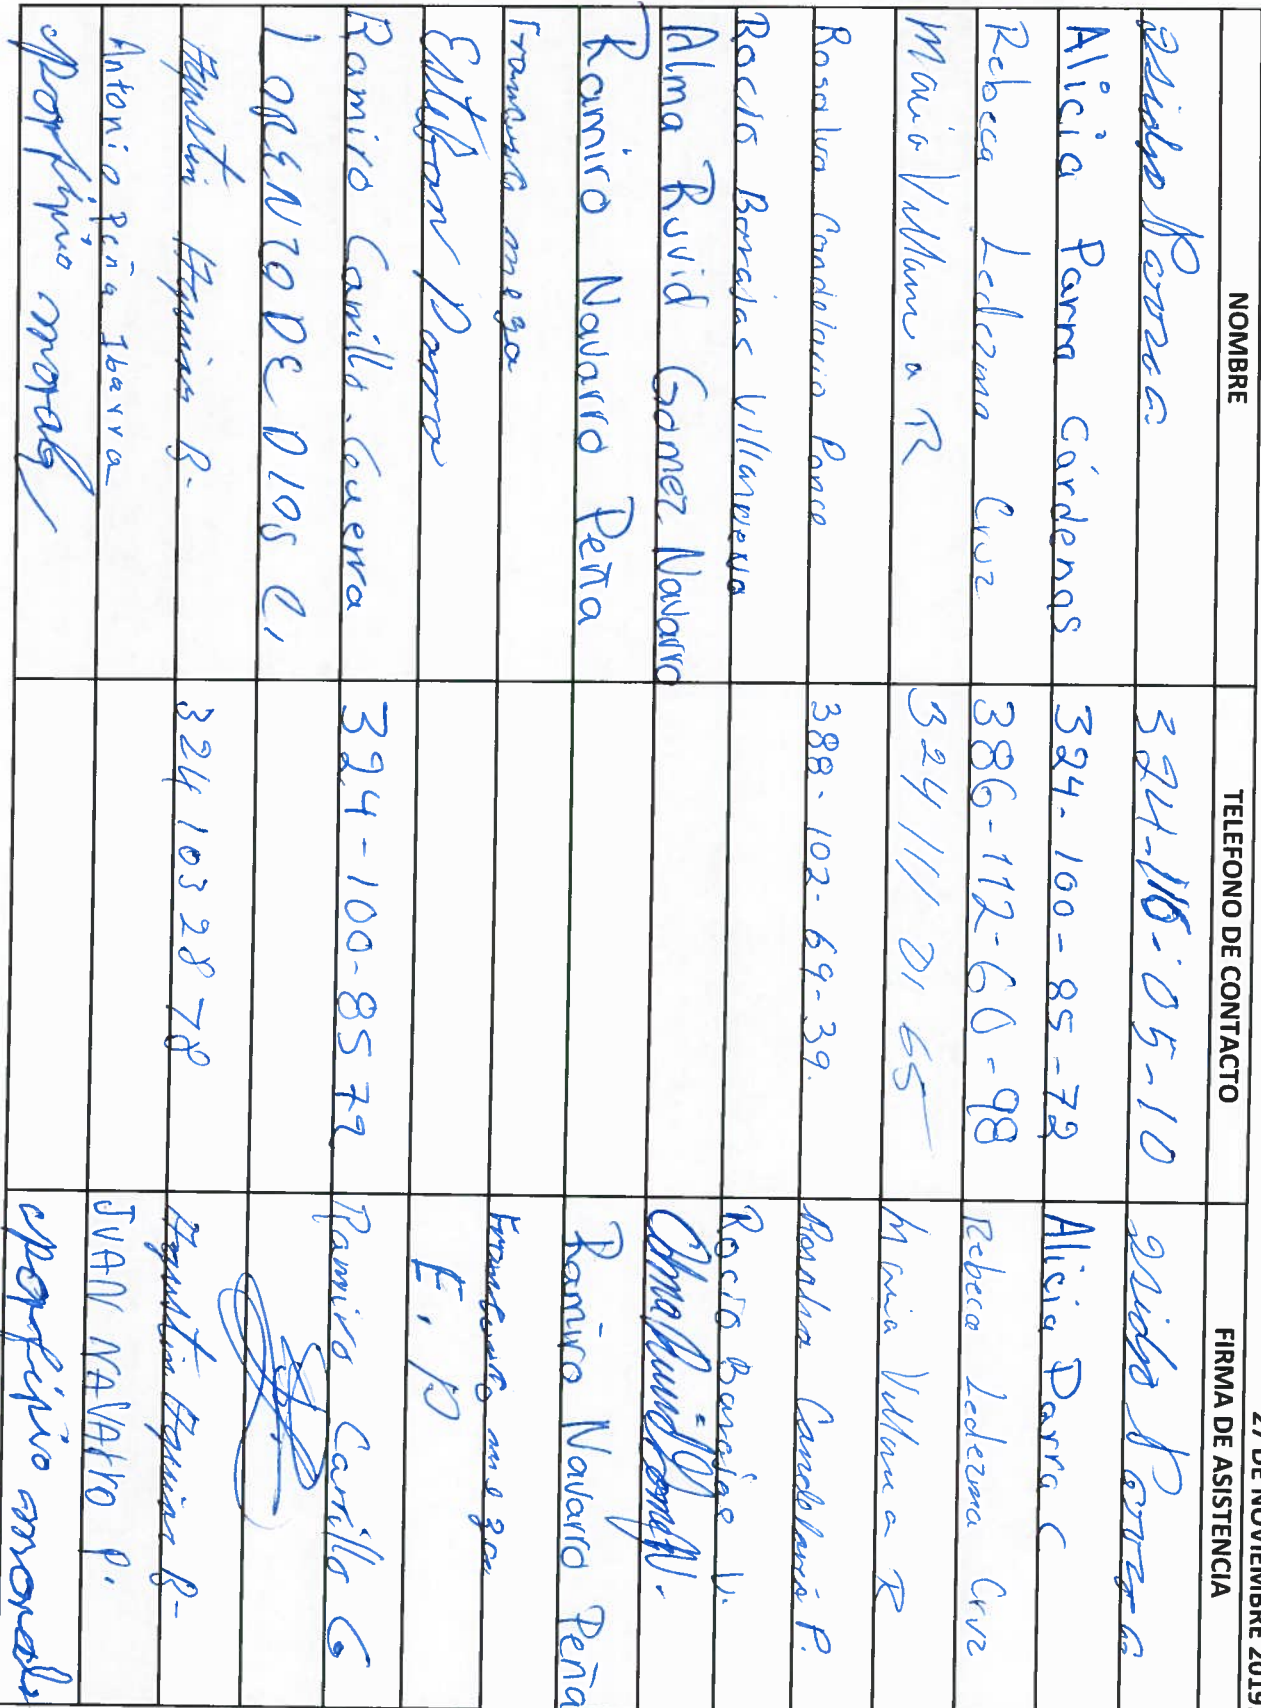 27 DE NOVIEMBRE 2019
NOMBRE TELEFONO DE CONTACTO FIRMA DE ASISTENCIA
Isidro Parra G 324-116-05-10 Isidro Parra G
Alicia Parra Cárdenas 324-100-85-72 Alicia Parra C
Rebeca Ledezma Cruz 386-112-60-98 Rebeca Ledezma Cruz
Maria Villanueva R 324 111 01 65 Maria Villanueva R
Rosalva Candelario Ponce 388-102-69-39. Rosalva Candelario P.
Rocio Barajas Villanueva Rocio Barajas V.
Alma Ruvid Gomez Navarro Alma Ruvid Gomez N.
Ramiro Navarro Peña Ramiro Navarro Peña
Francisco meza Francisco meza
Esteban Parra E. P
Ramiro Carrillo Guerra 324-100-85 72 Ramiro Carrillo G
LORENZO DE DIOS C.
Agustin Aguiar B. 324 103 28 78 Agustin Aguiar B-
Antonio Peña Ibarra JUAN NAVARRO P.
Porfirio morales Porfirio morales